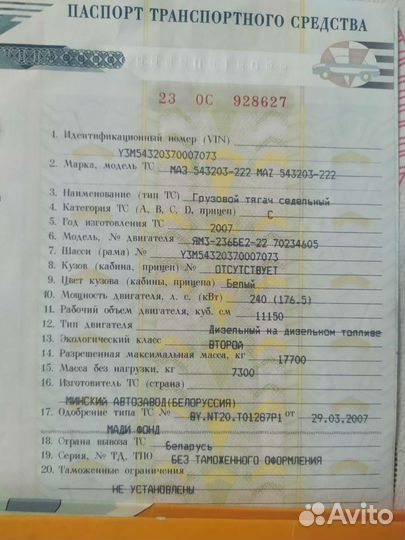 ПАСПОРТ ТРАНСПОРТНОГО СРЕДСТВА
23 ОС 928627
1. Идентификационный номер (VIN)
Y3M54320370007073
2. Марка, модель ТС МАЗ 543203-222 MAZ 543203-222
3. Наименование (тип ТС) Грузовой тягач седельный
4. Категория ТС (A, B, C, D, прицеп) C
5. Год изготовления ТС 2007
6. Модель, № двигателя ЯМЗ-236БЕ2-22 70234605
7. Шасси (рама) № Y3M54320370007073
8. Кузов (кабина, прицеп) № ОТСУТСТВУЕТ
9. Цвет кузова (кабины, прицепа) Белый
10. Мощность двигателя, л. с. (кВт) 240 (176.5)
11. Рабочий объем двигателя, куб. см 11150
12. Тип двигателя Дизельный на дизельном топливе
13. Экологический класс ВТОРОЙ
14. Разрешенная максимальная масса, кг 17700
15. Масса без нагрузки, кг 7300
16. Изготовитель ТС (страна)
МИНСКИЙ АВТОЗАВОД(БЕЛОРУССИЯ)
17. Одобрение типа ТС № BY.NT20.T01287P1 от 29.03.2007
МАДИ ФОНД
18. Страна вывоза ТС Беларусь
19. Серия, № ТД, ТПО БЕЗ ТАМОЖЕННОГО ОФОРМЛЕНИЯ
20. Таможенные ограничения
НЕ УСТАНОВЛЕНЫ
Avito